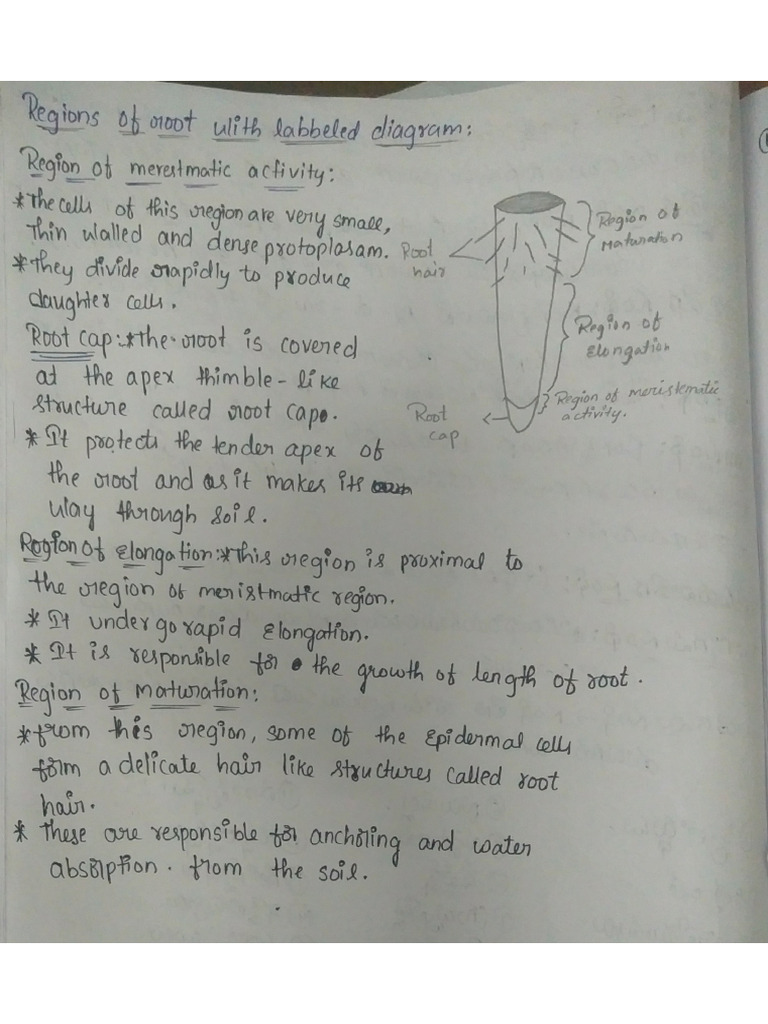 Regions of root with labbeled diagram:
Region of merestmatic activity:
*The cells of this region are very small,
Thin walled and dense protoplasam.
*They divide rapidly to produce
daughter cells.
Root cap:*the root is covered
at the apex thimble-like
structure called root cap.
* It protects the tender apex of
the root and as it makes its
way through soil.
Region of Elongation:*This region is proximal to
the region of meristmatic region.
* It undergo rapid Elongation.
* It is responsible for the growth of length of root.
Region of maturation:
*from this region, some of the Epidermal cells
form a delicate hair like structures called root
hair.
* These are responsible for anchoring and water
absorption. from the soil.
Root
hair
Region of
Maturation
Region of
Elongation
Region of meristematic
activity.
Root
cap